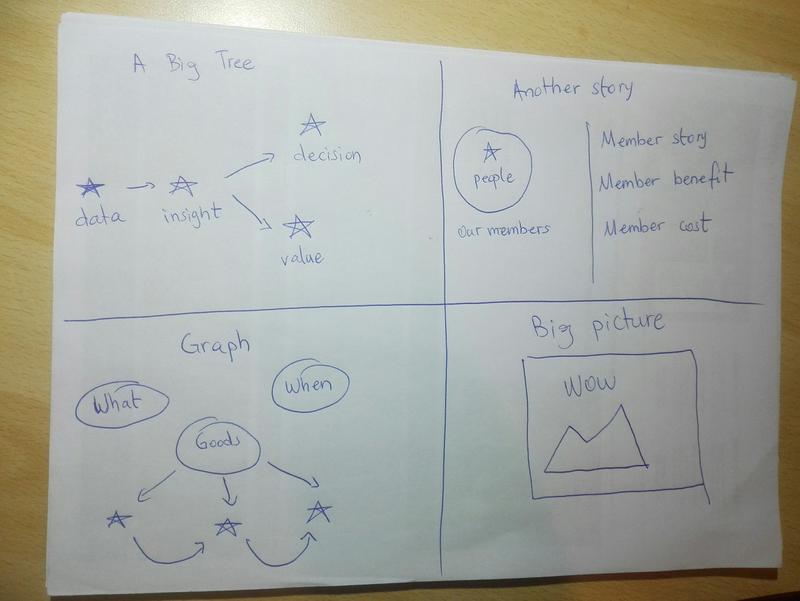 A Big Tree
decision
data
insight
value
Another story
people
our members
Member story
Member benefit
Member cost
Graph
What
When
Goods
Big picture
WOW